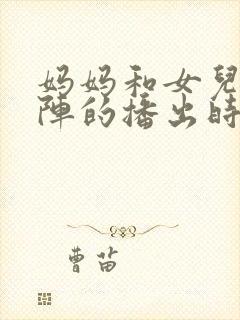 妈妈和女兒
陣的播出時
曹苗